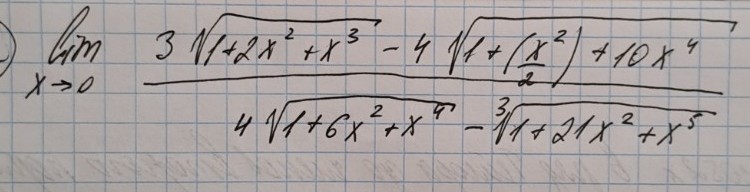 lim x→0 (3√(1+2x²+x³) - 4√(1+(x²/2)+10x⁴)) / (4√(1+6x²+x⁴) - ³√(1+21x²+x⁵))